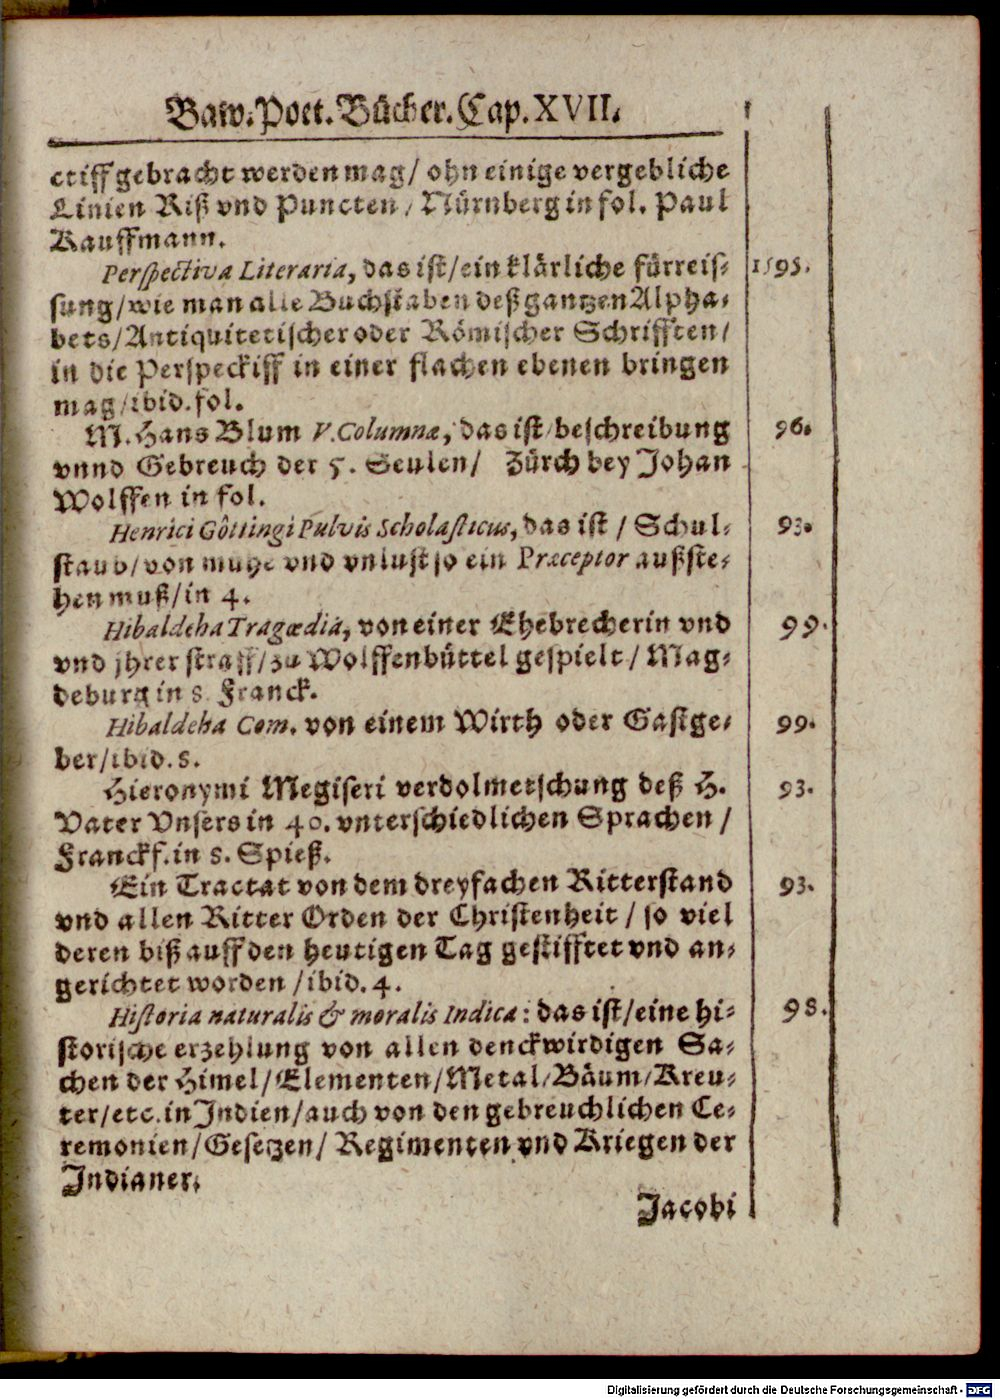 Baw. Poet. Bücher. Cap. XVII.
ctiff gebracht werden mag/ ohn einige vergebliche
Linien Riß vnd Puncten / Nürnberg in fol. Paul
Kauffmann.
Perspectiva Literaria, das ist/ ein klärliche fürreis- 1595.
sung/ wie man alle Buchstaben deß gantzen Alpha-
bets/ Antiquitetischer oder Römischer Schrifften/
in die Perspeckiff in einer flachen ebenen bringen
mag/ ibid. fol.
M. Hans Blum V. Columnæ, das ist/ beschreibung 96.
vnnd Gebreuch der 5. Seulen/ Zürch bey Johan
Wolffen in fol.
Henrici Göttingi Pulvis Scholasticus, das ist / Schul- 93.
staub/ von muhe vnd vnlust so ein Præceptor außste-
hen muß/ in 4.
Hibaldeha Tragœdia, von einer Ehebrecherin vnd 99.
vnd jhrer straff/ zu Wolffenbüttel gespielt / Mag-
deburg in 8. Franck.
Hibaldeha Com. von einem Wirth oder Gastge- 99.
ber/ ibid. 8.
Hieronymi Megiseri verdolmetschung deß H. 93.
Vater Vnsers in 40. vnterschiedlichen Sprachen /
Franckf. in 8. Spieß.
Ein Tractat von dem dreyfachen Ritterstand 93.
vnd allen Ritter Orden der Christenheit / so viel
deren biß auff den heutigen Tag gestifftet vnd an-
gerichtet worden / ibid. 4.
Historia naturalis & moralis Indica: das ist/ eine hi- 98.
storische erzehlung von allen denckwirdigen Sa-
chen der Himel/ Elementen/ Metal/ Bäum/ Kreu-
ter/ etc. in Indien/ auch von den gebreuchlichen Ce-
remonien/ Gesetzen/ Regimenten vnd Kriegen der
Indianer.
Jacobi
Digitalisierung gefördert durch die Deutsche Forschungsgemeinschaft - DFG